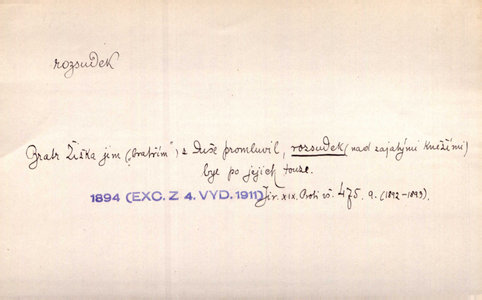 rozsudek
Bratr Žižka jim („bratřím“) z duše promluvil, rozsudek (nad zajatými kněžími)
byl po jejich touze.
1894 (EXC. Z 4. VYD. 1911) Jir. XIX. Proti vš. 475. a. (1892–1893).